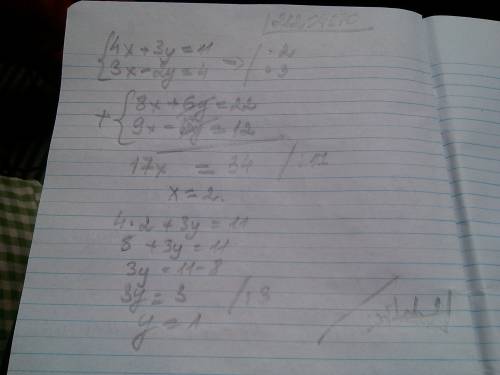 4x + 3y = 11
3x - 2y = 4 => / · 2 · 3
+ 8x + 6y = 22
9x - 6y = 12
17x = 34 / : 17
x = 2
4 · 2 + 3y = 11
8 + 3y = 11
3y = 11 - 8
3y = 3 / : 3
y = 1